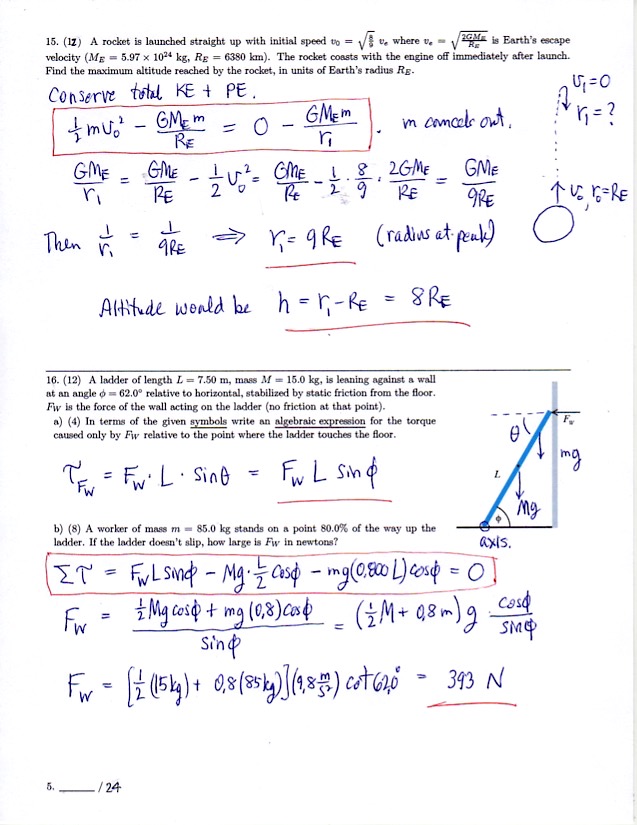 15. (12) A rocket is launched straight up with initial speed v₀ = √(8/9) vₑ where vₑ = √(2GM_E/R_E) is Earth's escape
velocity (M_E = 5.97 × 10²⁴ kg, R_E = 6380 km). The rocket coasts with the engine off immediately after launch.
Find the maximum altitude reached by the rocket, in units of Earth's radius R_E.
Conserve total KE + PE.
v₁=0
r₁=?
½mv₀² − GM_Em/R_E = 0 − GM_Em/r₁ . m cancels out.
GM_E/r₁ = GM_E/R_E − ½v₀² = GM_E/R_E − ½ · 8/9 · 2GM_E/R_E = GM_E/9R_E
v₀, r₀=R_E
Then 1/r₁ = 1/9R_E ⟹ r₁ = 9R_E (radius at peak)
Altitude would be h = r₁ − R_E = 8R_E
16. (12) A ladder of length L = 7.50 m, mass M = 15.0 kg, is leaning against a wall
at an angle ϕ = 62.0° relative to horizontal, stabilized by static friction from the floor.
F_W is the force of the wall acting on the ladder (no friction at that point).
a) (4) In terms of the given symbols write an algebraic expression for the torque
caused only by F_W relative to the point where the ladder touches the floor.
F_w
θ
mg
L
Mg
ϕ
axis.
τ_FW = F_W · L · sinθ = F_W L sinϕ
b) (8) A worker of mass m = 85.0 kg stands on a point 80.0% of the way up the
ladder. If the ladder doesn't slip, how large is F_W in newtons?
Στ = F_W L sinϕ − Mg · L/2 cosϕ − mg(0.800 L) cosϕ = 0
F_W = (½Mg cosϕ + mg(0.8)cosϕ)/sinϕ = (½M + 0.8m) g cosϕ/sinϕ
F_W = [½(15kg) + 0.8(85kg)](9.8 m/s²) cot 62.0° = 393 N
5. ____ / 24